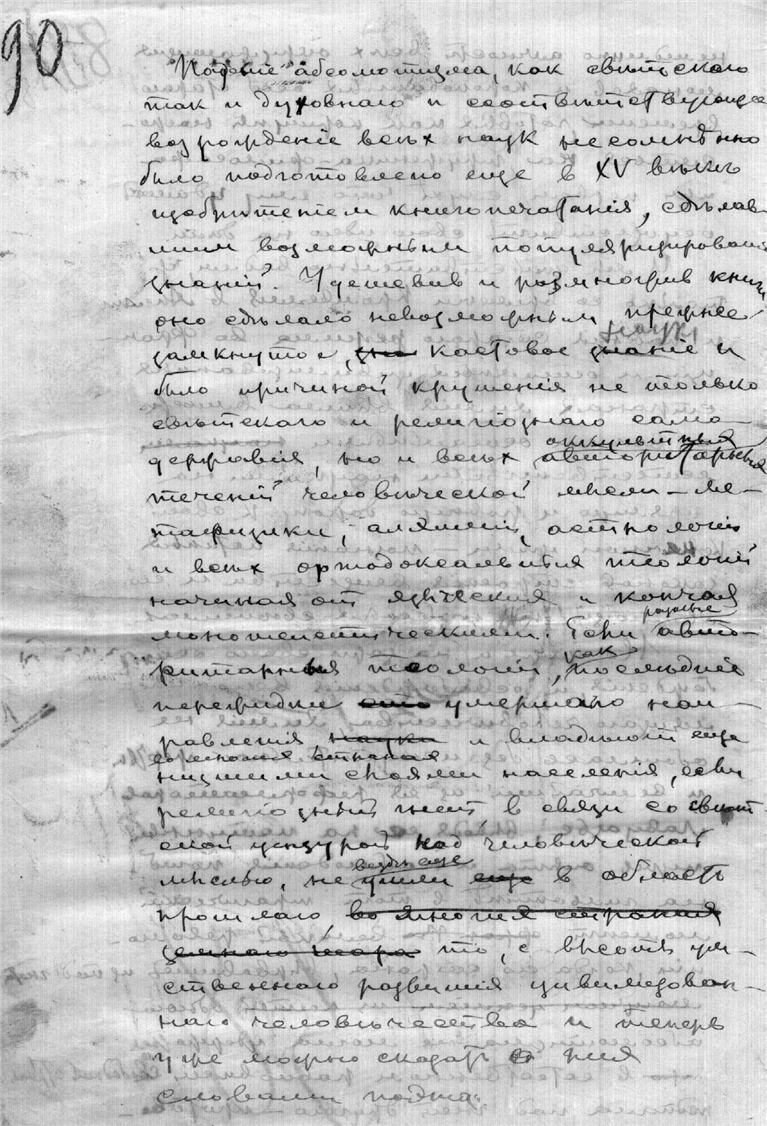 90
Паденіе абсолютизма, как свѣтскаго
так и духовнаго и соотвѣтствующее
возрожденіе всѣх наук несомнѣнно
было подготовлено еще в XV вѣкѣ
изобрѣтеніем книгопечатанія, сдѣлав-
шим возможным популяризированіе
знаній. Удешевив и размножив книги
оно сдѣлало невозможным прежнее
науки
замкнутое, кастовое знаніе и
было причиной крушенія не только
свѣтскаго и религіознаго само-
оккультныя
державія, но и всѣх авторитарных
теченій человѣческой мысли – ме-
тафизики, алхиміи, астрологіи
и всѣх ортодоксальныя теологій
начиная от языческия и кончая
монотеистическими. Если авто-
как
ритарныя теологіи, послѣдніе
пережитки умершаго нап-
равленія наука и владѣют еще
низшими слоями населенія, если
религіозный гнет, в связи со свѣт-
ской цензурой над человѣческой
вездѣ еще
мыслью, не ушли еще в область
прошлаго во многих странах
земнаго шара то, с высоты ум-
ственнаго развитія цивилизован-
наго человѣчества и теперь
уже можно сказать о них
словами поэта: